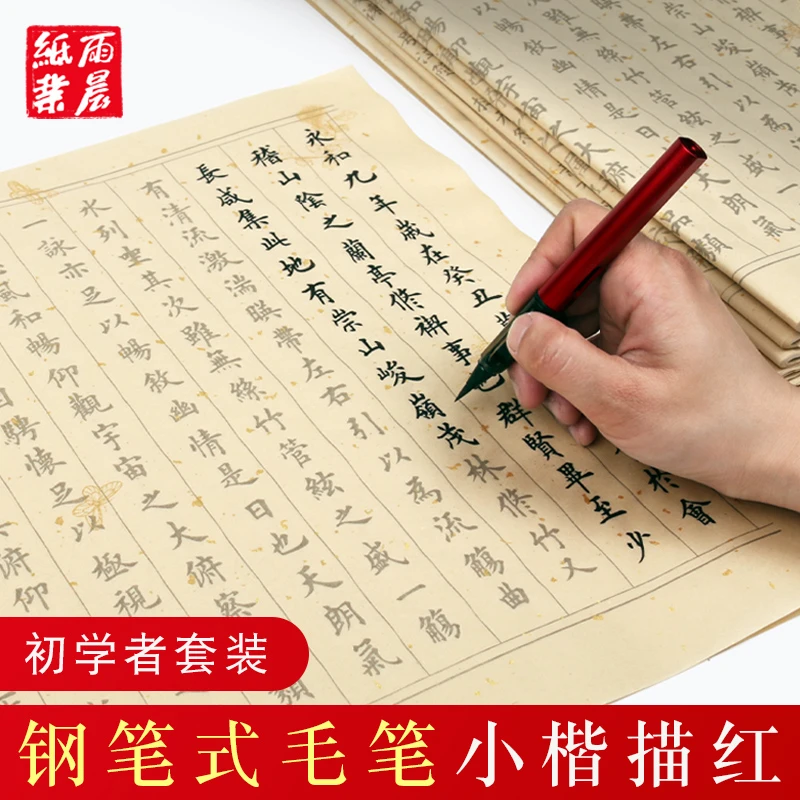 雨晨
紙業
永和九年歲在癸丑
於會
稽山陰之蘭亭修禊事也群賢畢至少
長咸集此地有崇山峻嶺茂林修竹又
有清流激湍暎帶左右引以為流觴曲
水列坐其次雖無絲竹管絃之盛一觴
一詠亦足以暢敘幽情是日也天朗氣
風和暢仰觀宇宙之大俯察
類
騁懷足以極視
俯仰
初学者套装
钢笔式毛笔小楷描红